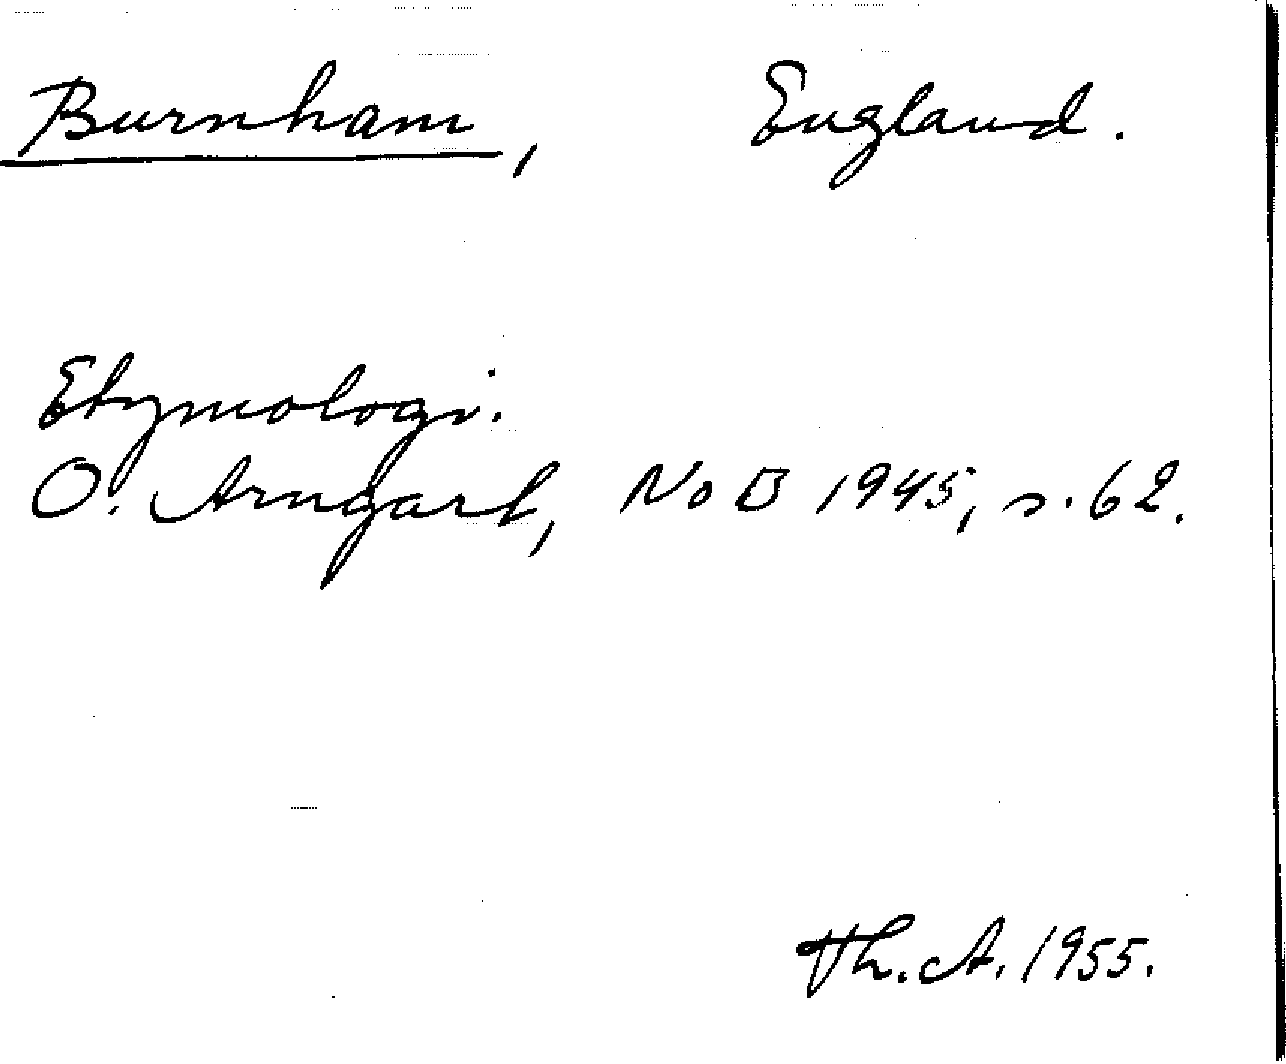 Burnham, England.
Etymologi.
O. Arngart, NoB 1945, s. 62.
Th. A. 1955.